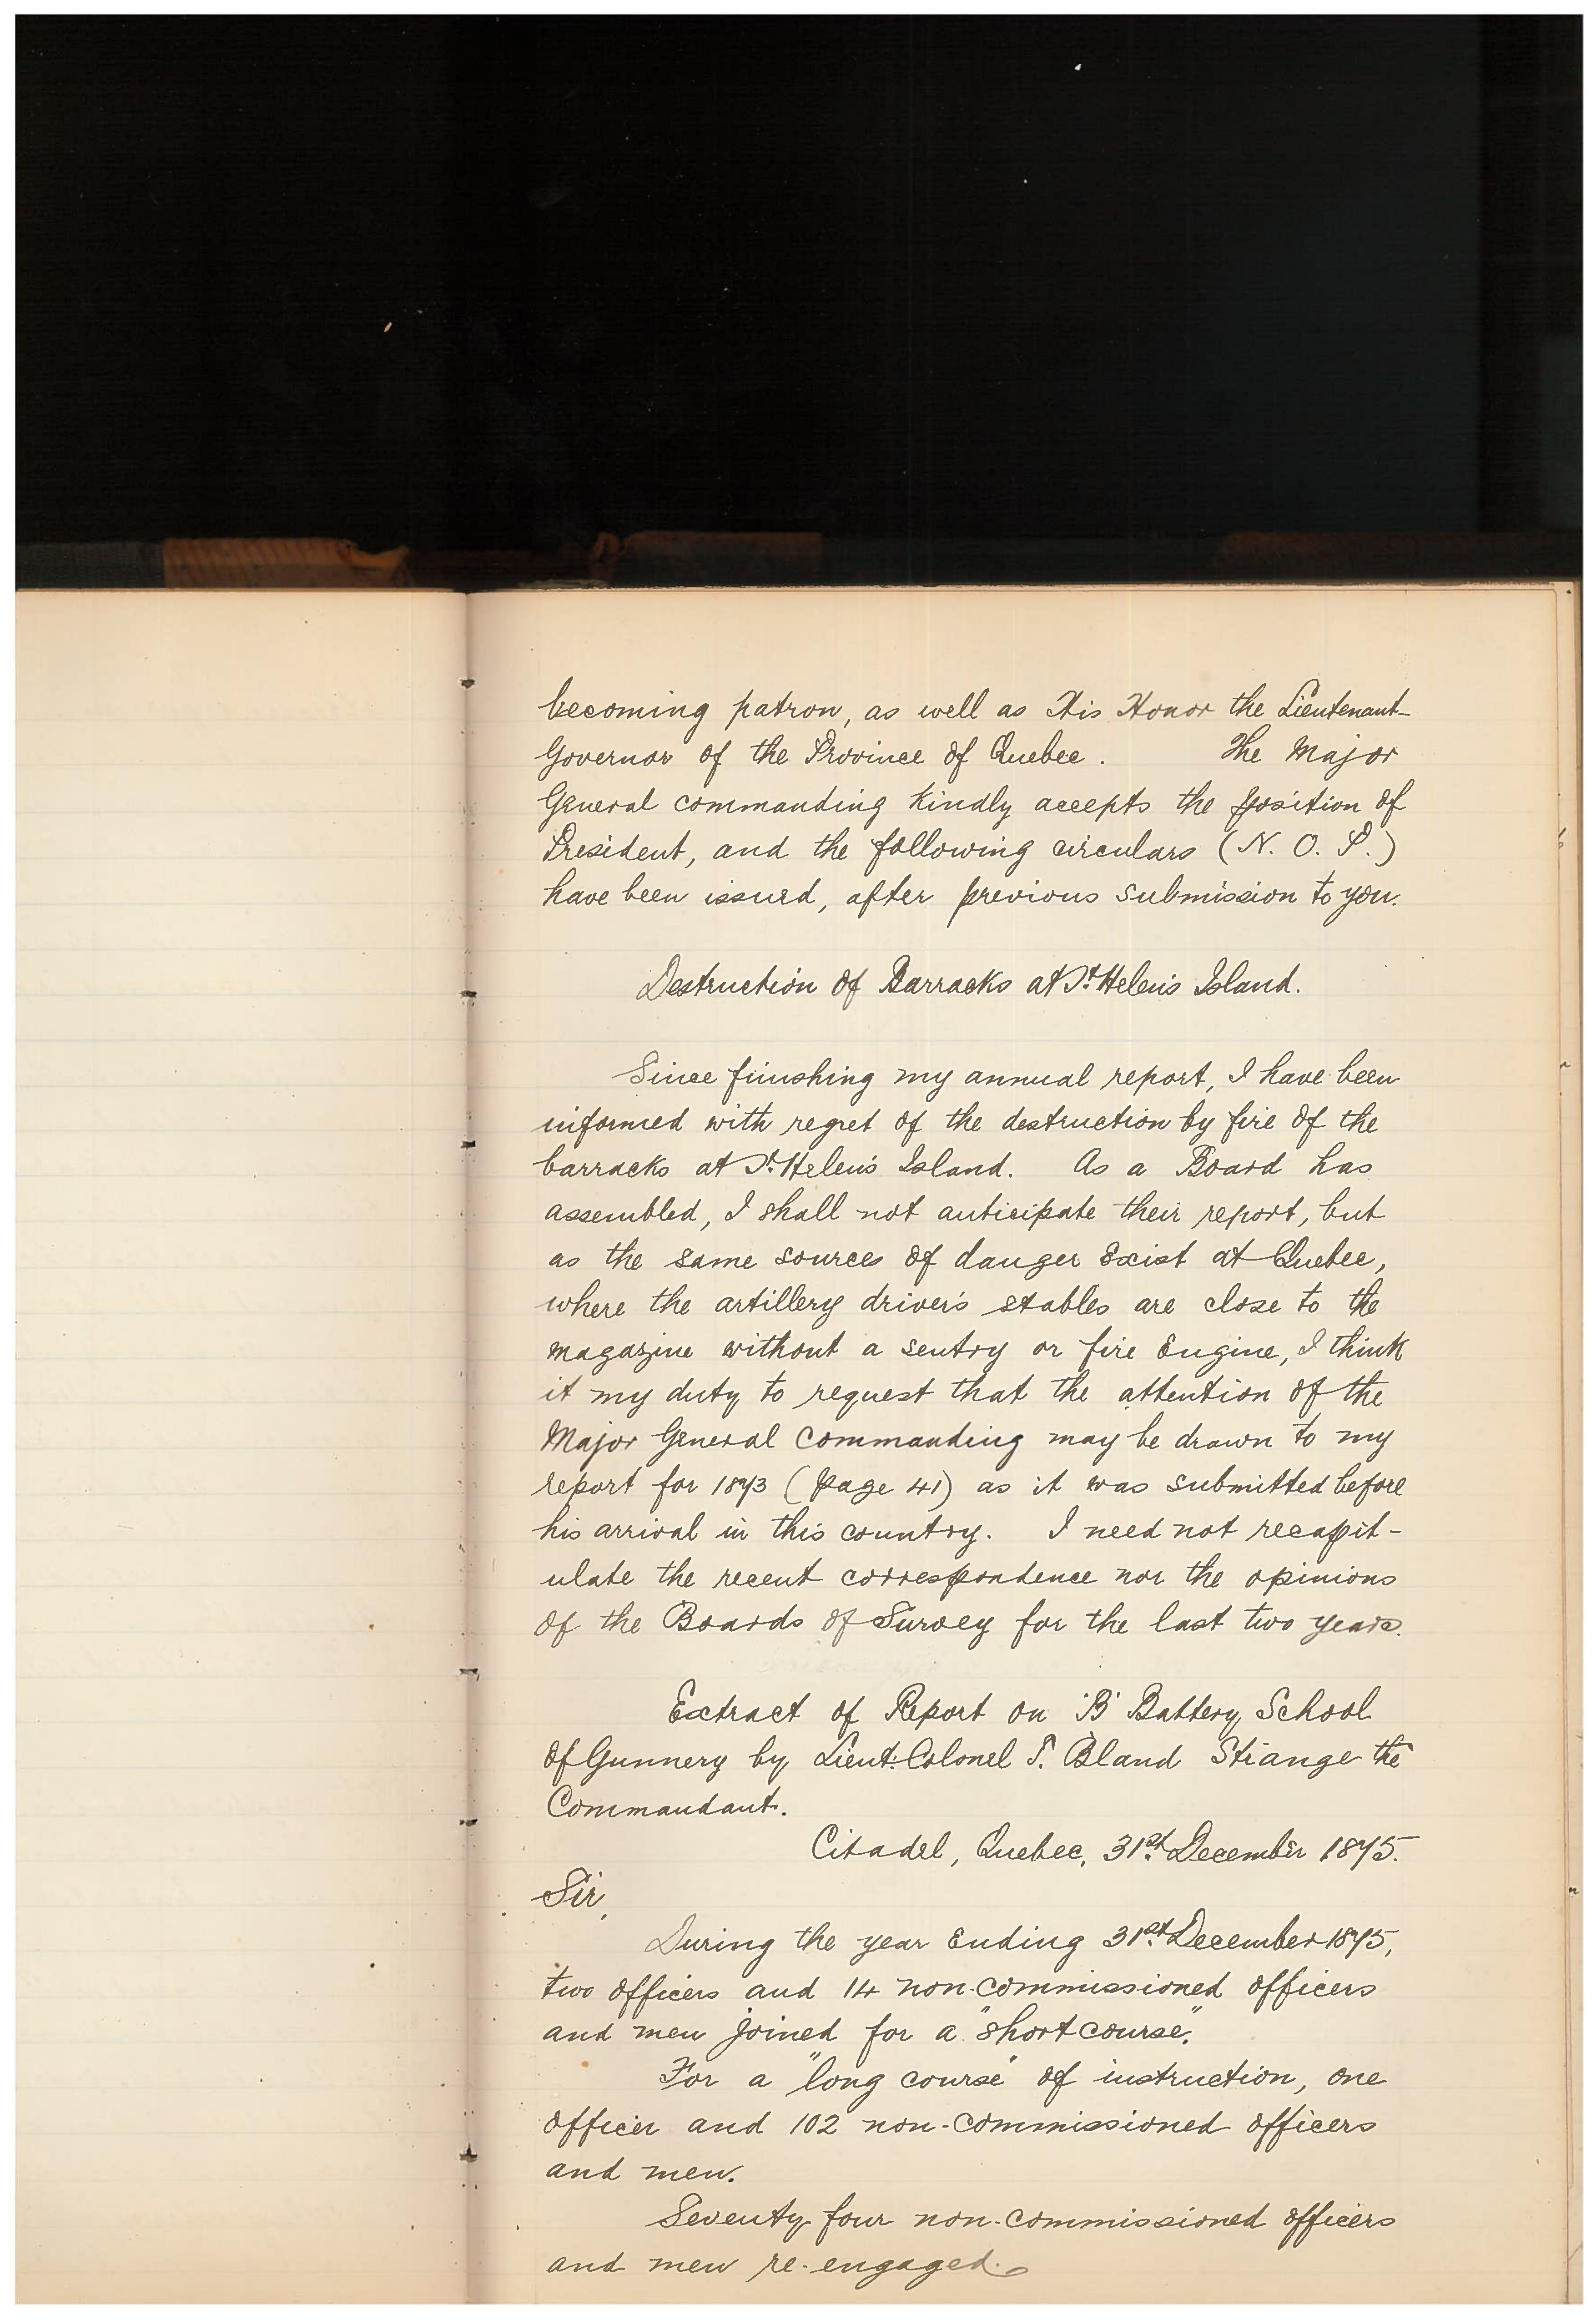 becoming patron, as well as His Honor the Lieutenant-
Governor of the Province of Quebec. The Major
General commanding kindly accepts the position of
President, and the following circulars (N. O. P.)
have been issued, after previous submission to you.
Destruction of Barracks at St. Helen's Island.
Since finishing my annual report, I have been
informed with regret of the destruction by fire of the
barracks at St. Helen's Island. As a Board has
assembled, I shall not anticipate their report, but
as the same sources of danger exist at Quebec,
where the artillery driver's stables are close to the
magazine without a sentry or fire Engine, I think
it my duty to request that the attention of the
Major General Commanding may be drawn to my
report for 1873 (page 41) as it was submitted before
his arrival in this country. I need not recapit-
ulate the recent correspondence nor the opinions
of the Boards of Survey for the last two years.
Extract of Report on "B" Battery, School
of Gunnery by Lieut. Colonel T. Bland Strange the
Commandant.
Citadel, Quebec, 31st. December 1875.
Sir,
During the year Ending 31st. December 1875,
two officers and 14 non-commissioned officers
and men joined for a "short course".
For a "long course" of instruction, one
officer and 102 non-commissioned officers
and men.
Seventy four non-commissioned officers
and men re-engaged.